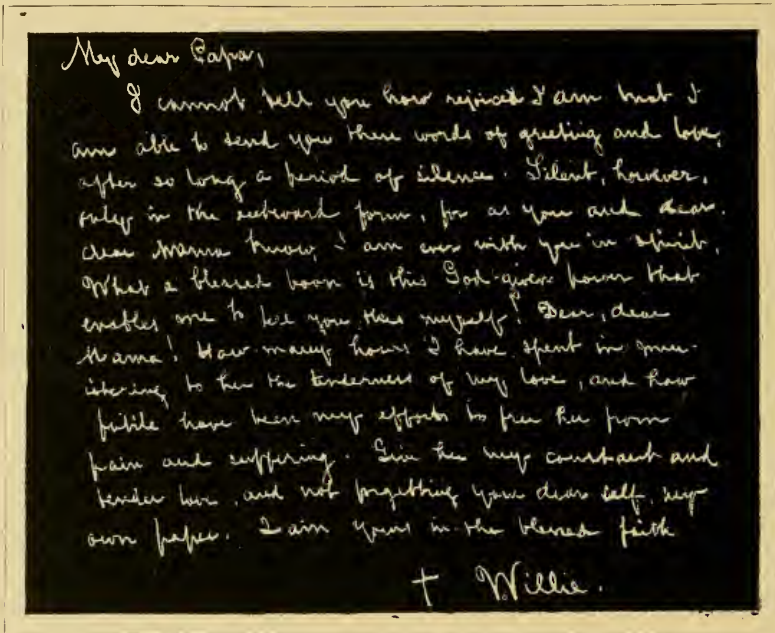 My dear Papa,
I cannot tell you how rejoiced I am that I
am able to send you these words of greeting and love,
after so long a period of silence. Silent, however,
only in the outward form, for as you and dear,
dear Mamma know, I am ever with you in spirit.
What a blessed boon is this God-given power that
enables me to tell you this myself! Dear, dear
Mama! How many hours I have spent in min-
istering to her the tenderness of my love, and how
futile have been my efforts to free her from
pain and suffering. Give her my constant and
tender love, and not forgetting your dear self, my
own papa. I am yours in the blessed faith
† Willie.